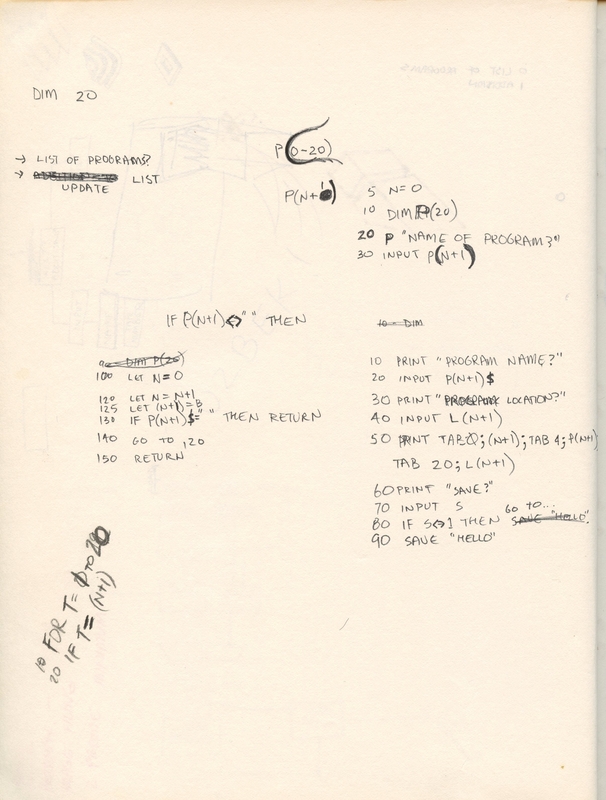 DIM 20
P(0-20)
→ LIST OF PROGRAMS?
→ LIST
UPDATE
P(N+
5 N=0
10 DIM P(20)
20 P "NAME OF PROGRAM?"
30 INPUT P(N+1)
IF P(N+1)<>" " THEN
DIM P(20)
100 LET N=0
120 LET N=N+1
125 LET (N+1)=B
130 IF P(N+1)$=" " THEN RETURN
140 GO TO 120
150 RETURN
10 - DIM
10 PRINT "PROGRAM NAME?"
20 INPUT P(N+1)$
30 PRINT "PROGRAM LOCATION?"
40 INPUT L(N+1)
50 PRINT TAB 0; (N+1); TAB 4; P(N+1)
TAB 20; L(N+1)
60 PRINT "SAVE?"
70 INPUT S
GO TO...
80 IF S<>1 THEN SAVE "HELLO".
90 SAVE "HELLO"
10 FOR T= 0 TO 20
20 IF T= (N+1)